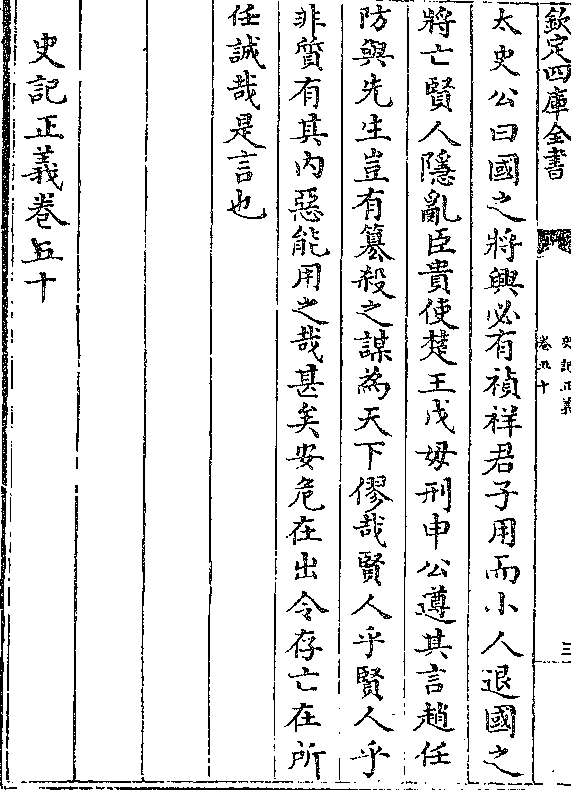 欽定四庫全書
史記正義
卷五十
三
太史公曰國之將興必有禎祥君子用而小人退國之
將亡賢人隱亂臣貴使楚王戊毋刑申公遵其言趙任
防與先生豈有簒殺之謀為天下僇哉賢人乎賢人乎
非質有其内惡能用之哉甚矣安危在出令存亡在所
任誠哉是言也
史記正義卷五十